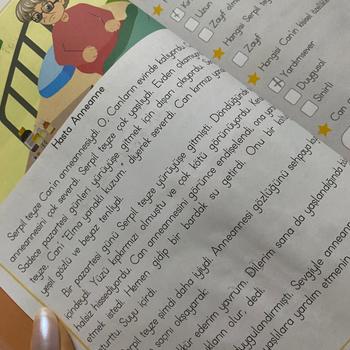 Hasta Anneanne
Serpil teyze Can'ın anneannesiydi. O, Canların evinde kalıyordu.
anneannesini çok severdi. Serpil teyze çok yaşlıydı. Evden çıkamıyo
Sadece pazartesi günleri yürüyüşe gitmek için dışarı çıkıyordu. Se
teyze, Can'ı Elma yanaklı kuzum, diyerek severdi. Can kırmızı ya
yeşil gözlü ve beyaz tenliydi.
Bir pazartesi günü Serpil teyze yürüyüşe gitmişti. Döndüğünd
indeydi. Yüzü kıpkırmızı olmuştu ve çok kötü görünüyordu. Ken
halsiz hissediyordu. Can anneannesini görünce endişelendi, ona
etmek istedi. Hemen gidip bir bardak su getirdi. Onu bir ko
turttu. Suyu içirdi.
rpil teyze şimdi daha iyiydi. Anneannesi gözlüğünü sehpaya
saçını okşayarak:
kür ederim yavrum. Dilerim sana da yaşlandığında
kların olur, dedi.
uygulandırmıştı. Sevgiyle annean
yaşlılara yardım etmenin
Kı
Uzun
Zayıf
Hangisi Serpil tey
Zayıf
Hangisi Can'ın kişilik
Yardımsever
Duygusal
Sinirli
Can